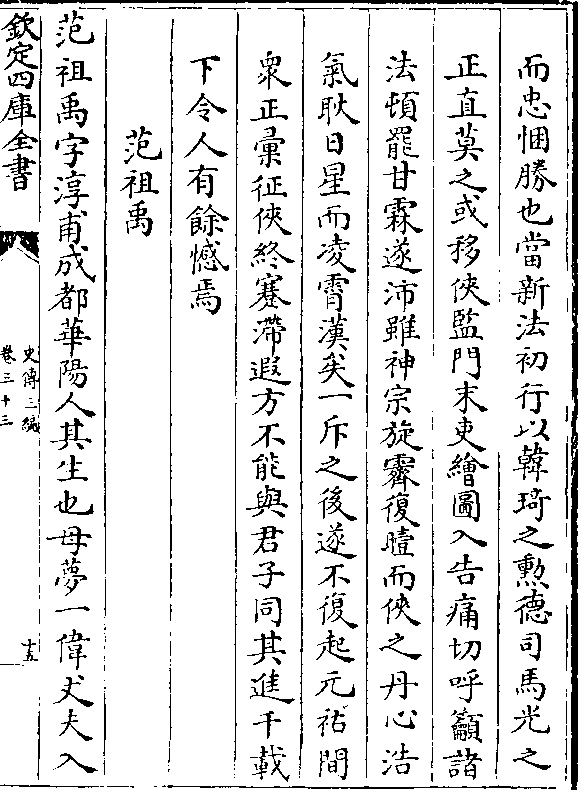 而忠悃勝也當新法初行以韓琦之勲德司馬光之
正直莫之或移俠監門末吏繪圖入告痛切呼籲諸
法頓罷甘霖遂沛雖神宗旋霽復曀而俠之丹心浩
氣耿日星而凌霄漢矣一斥之後遂不復起元祐間
衆正彚征俠終蹇滯遐方不能與君子同其進千載
下令人有餘憾焉
范祖禹
范祖禹字淳甫成都華陽人其生也母夢一偉丈夫入
欽定四庫全書
史傳三編
卷三十三
十五